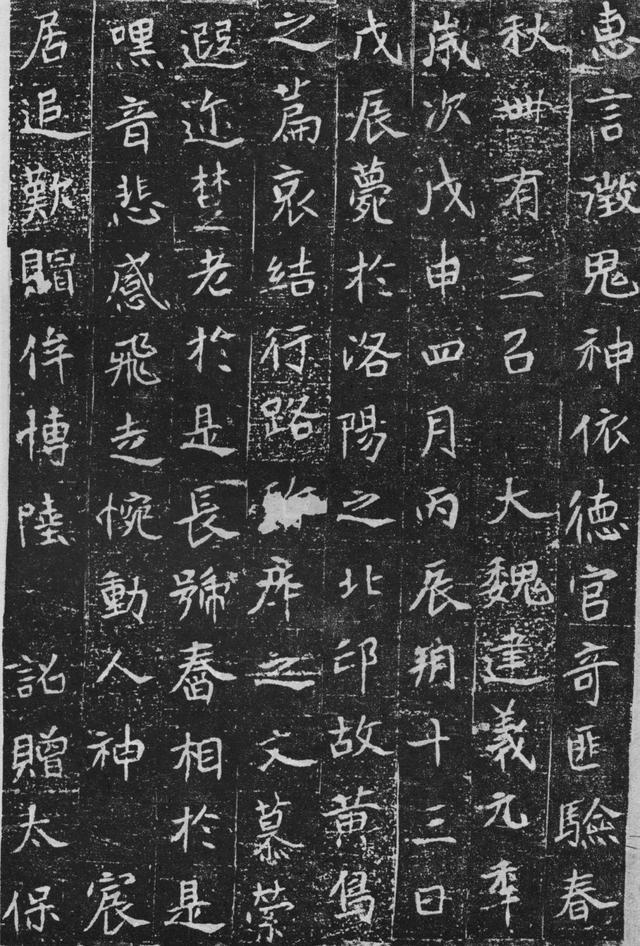 惠言澂鬼神依德官奇匪驗春
秋卌有三召大魏建義元年
歲次戊申四月丙辰朔十三日
戊辰薨於洛陽之北邙故黃鳥
之篇哀結行路所序之文慕縈
遐迩楚老於是長號舂相於是
嘿音悲感飛走惋動人神宸
居追歎賵侔博陸詔贈太保